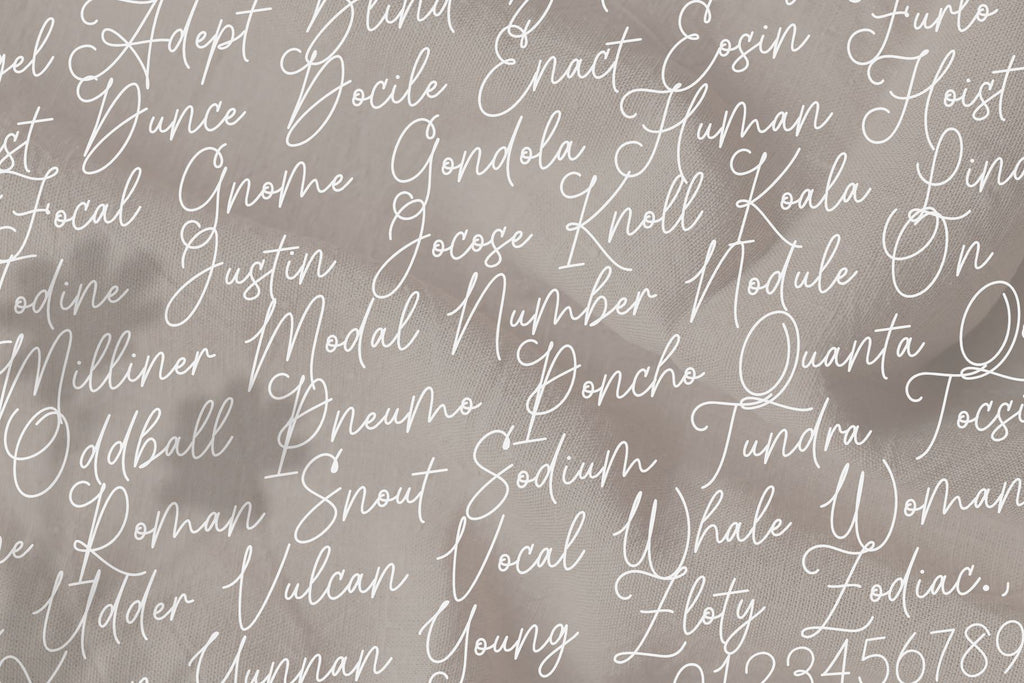 gel Adept Blind
st Dunce Docile Enact Eosin Furlo
Focal Gnome Gondola Human Hoist
Iodine Justin Jocose Knoll Koala
Milliner Modal Number Nodule On
Oddball Pneumo Poncho Quanta Q
Roman Snout Sodium Tundra Tocsi
Udder Vulcan Vocal Whale Woman
Yunnan Young Zloty Zodiac.,
0123456789